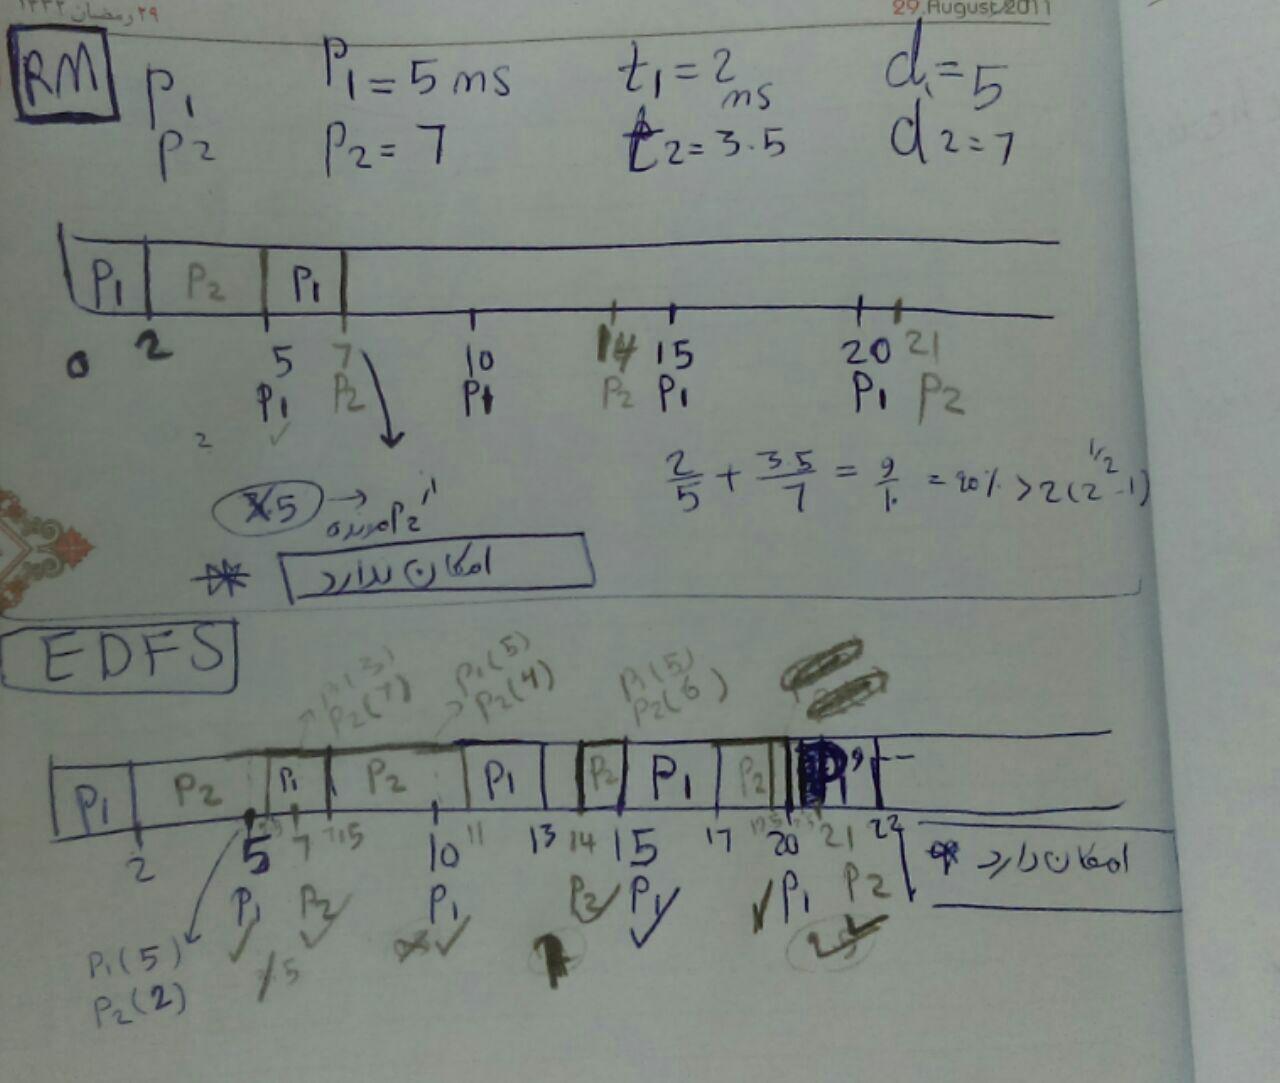 ۲۹ رمضان ۱۴۳۲
29 August/2011
RM
P1 P1 = 5 ms t1 = 2 ms d1 = 5
P2 P2 = 7 t2 = 3.5 d2 = 7
P1 P2 P1
0 2 5 7 10 14 15 20 21
P1 P2 P1 P2 P1 P1 P2
2
2/5 + 3.5/7 = 9/10 = 90% > 2(2^1/2 - 1)
از P2
امکان ندارد
EDFS
P1(3) P1(5) P1(5)
P2(7) P2(4) P2(6)
P1 P2 P1 P2 P1 P2 P1 P2 P1
2 5 5.5 7 7.5 10 11 13 14 15 17 20 21 22
P1 P2 P1 P2 P1 P1 P2
امکان دارد
P1(5)
P2(2)